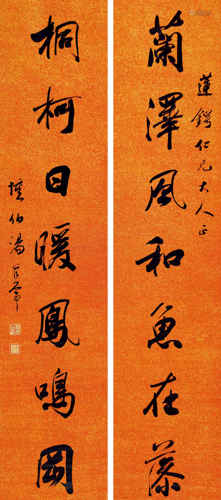 蓮鍔仁兄大人正
蘭澤風和魚在藻
桐柯日暖鳳鳴岡
伯湯